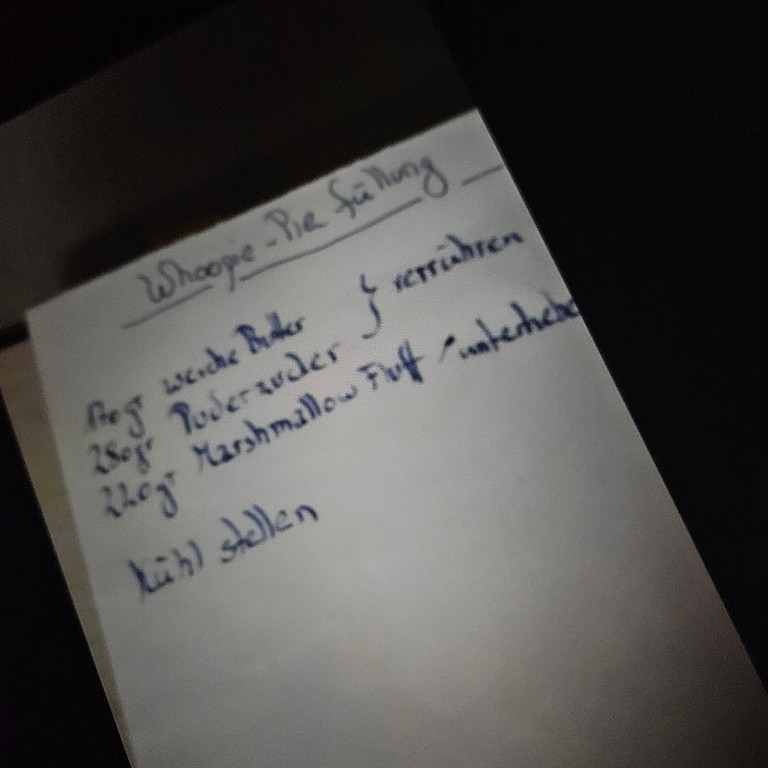 Whoopie-Pie füllung
weiche Butter } verrühren
280gr Puderzucker
220gr Marshmallow Fluff / unterhebe
Kühl stellen